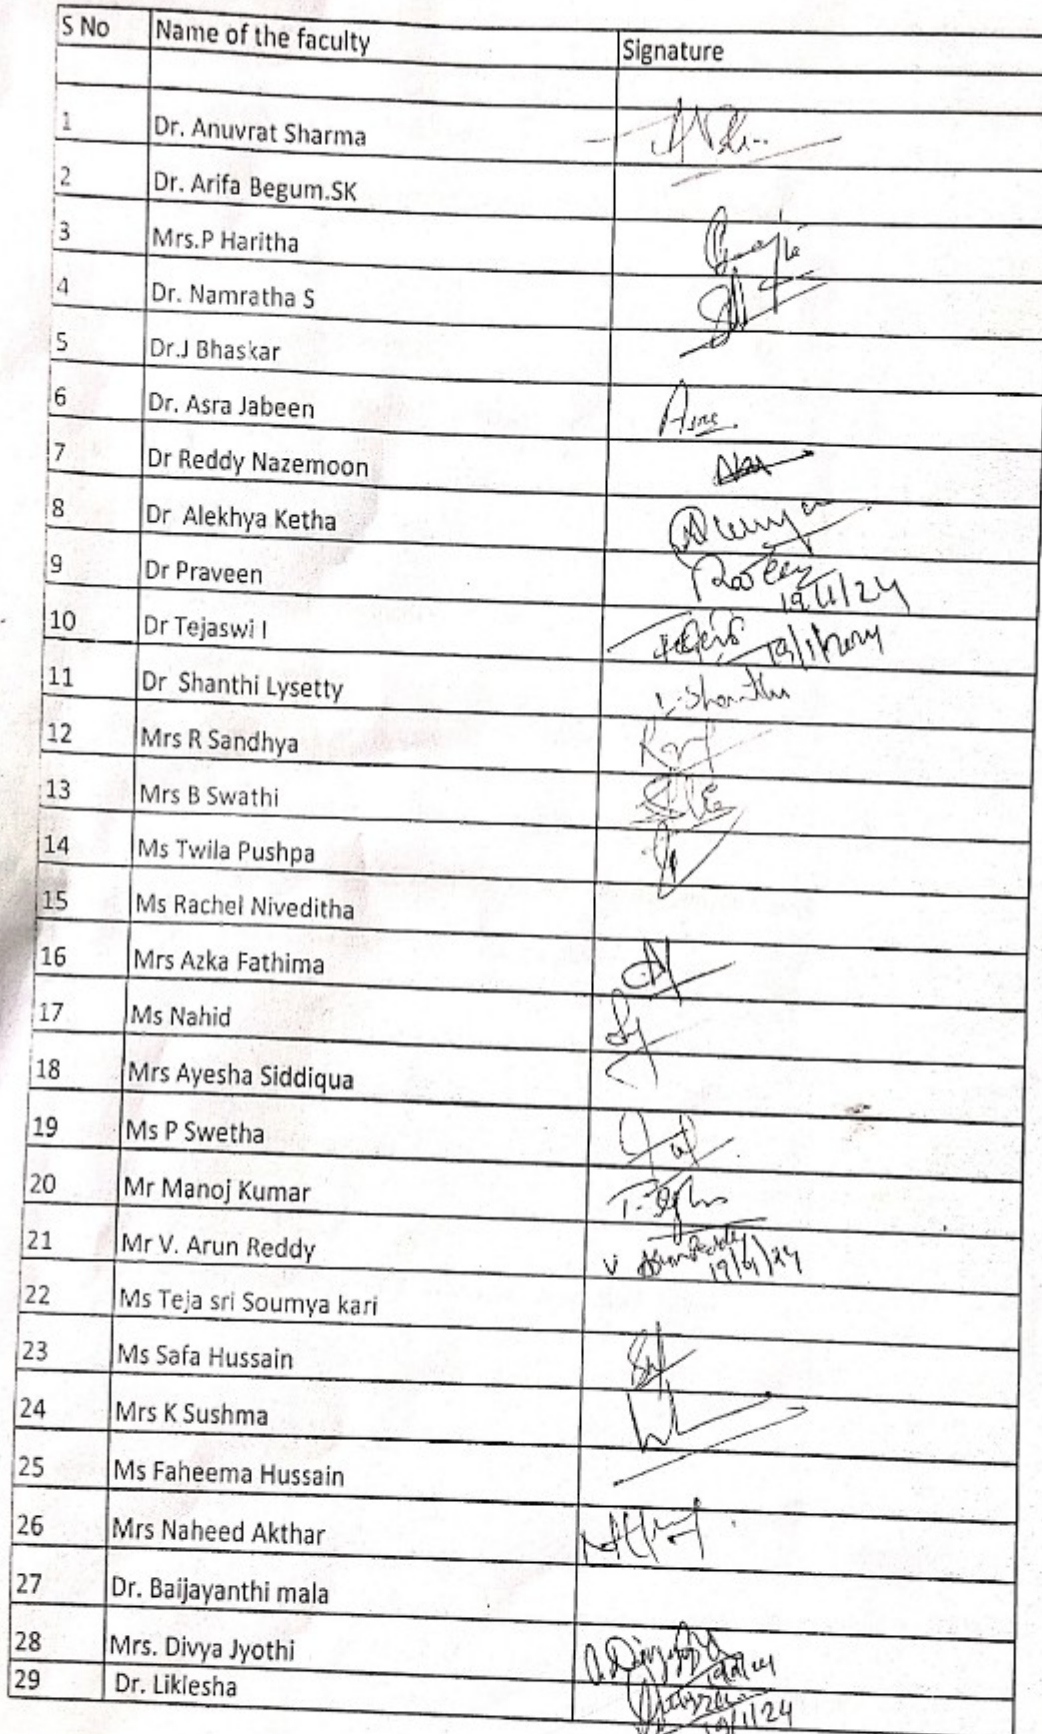 S No Name of the faculty Signature
1 Dr. Anuvrat Sharma
2 Dr. Arifa Begum.SK
3 Mrs.P Haritha
4 Dr. Namratha S
5 Dr.J Bhaskar
6 Dr. Asra Jabeen
7 Dr Reddy Nazemoon
8 Dr Alekhya Ketha
9 Dr Praveen 19/1/24
10 Dr Tejaswi I 19/1/2024
11 Dr Shanthi Lysetty L-Shanthi
12 Mrs R Sandhya
13 Mrs B Swathi
14 Ms Twila Pushpa
15 Ms Rachel Niveditha
16 Mrs Azka Fathima
17 Ms Nahid
18 Mrs Ayesha Siddiqua
19 Ms P Swetha
20 Mr Manoj Kumar
21 Mr V. Arun Reddy V Arun Reddy 19/1/24
22 Ms Teja sri Soumya kari
23 Ms Safa Hussain
24 Mrs K Sushma
25 Ms Faheema Hussain
26 Mrs Naheed Akthar
27 Dr. Baijayanthi mala
28 Mrs. Divya Jyothi
29 Dr. Likiesha 19/1/24